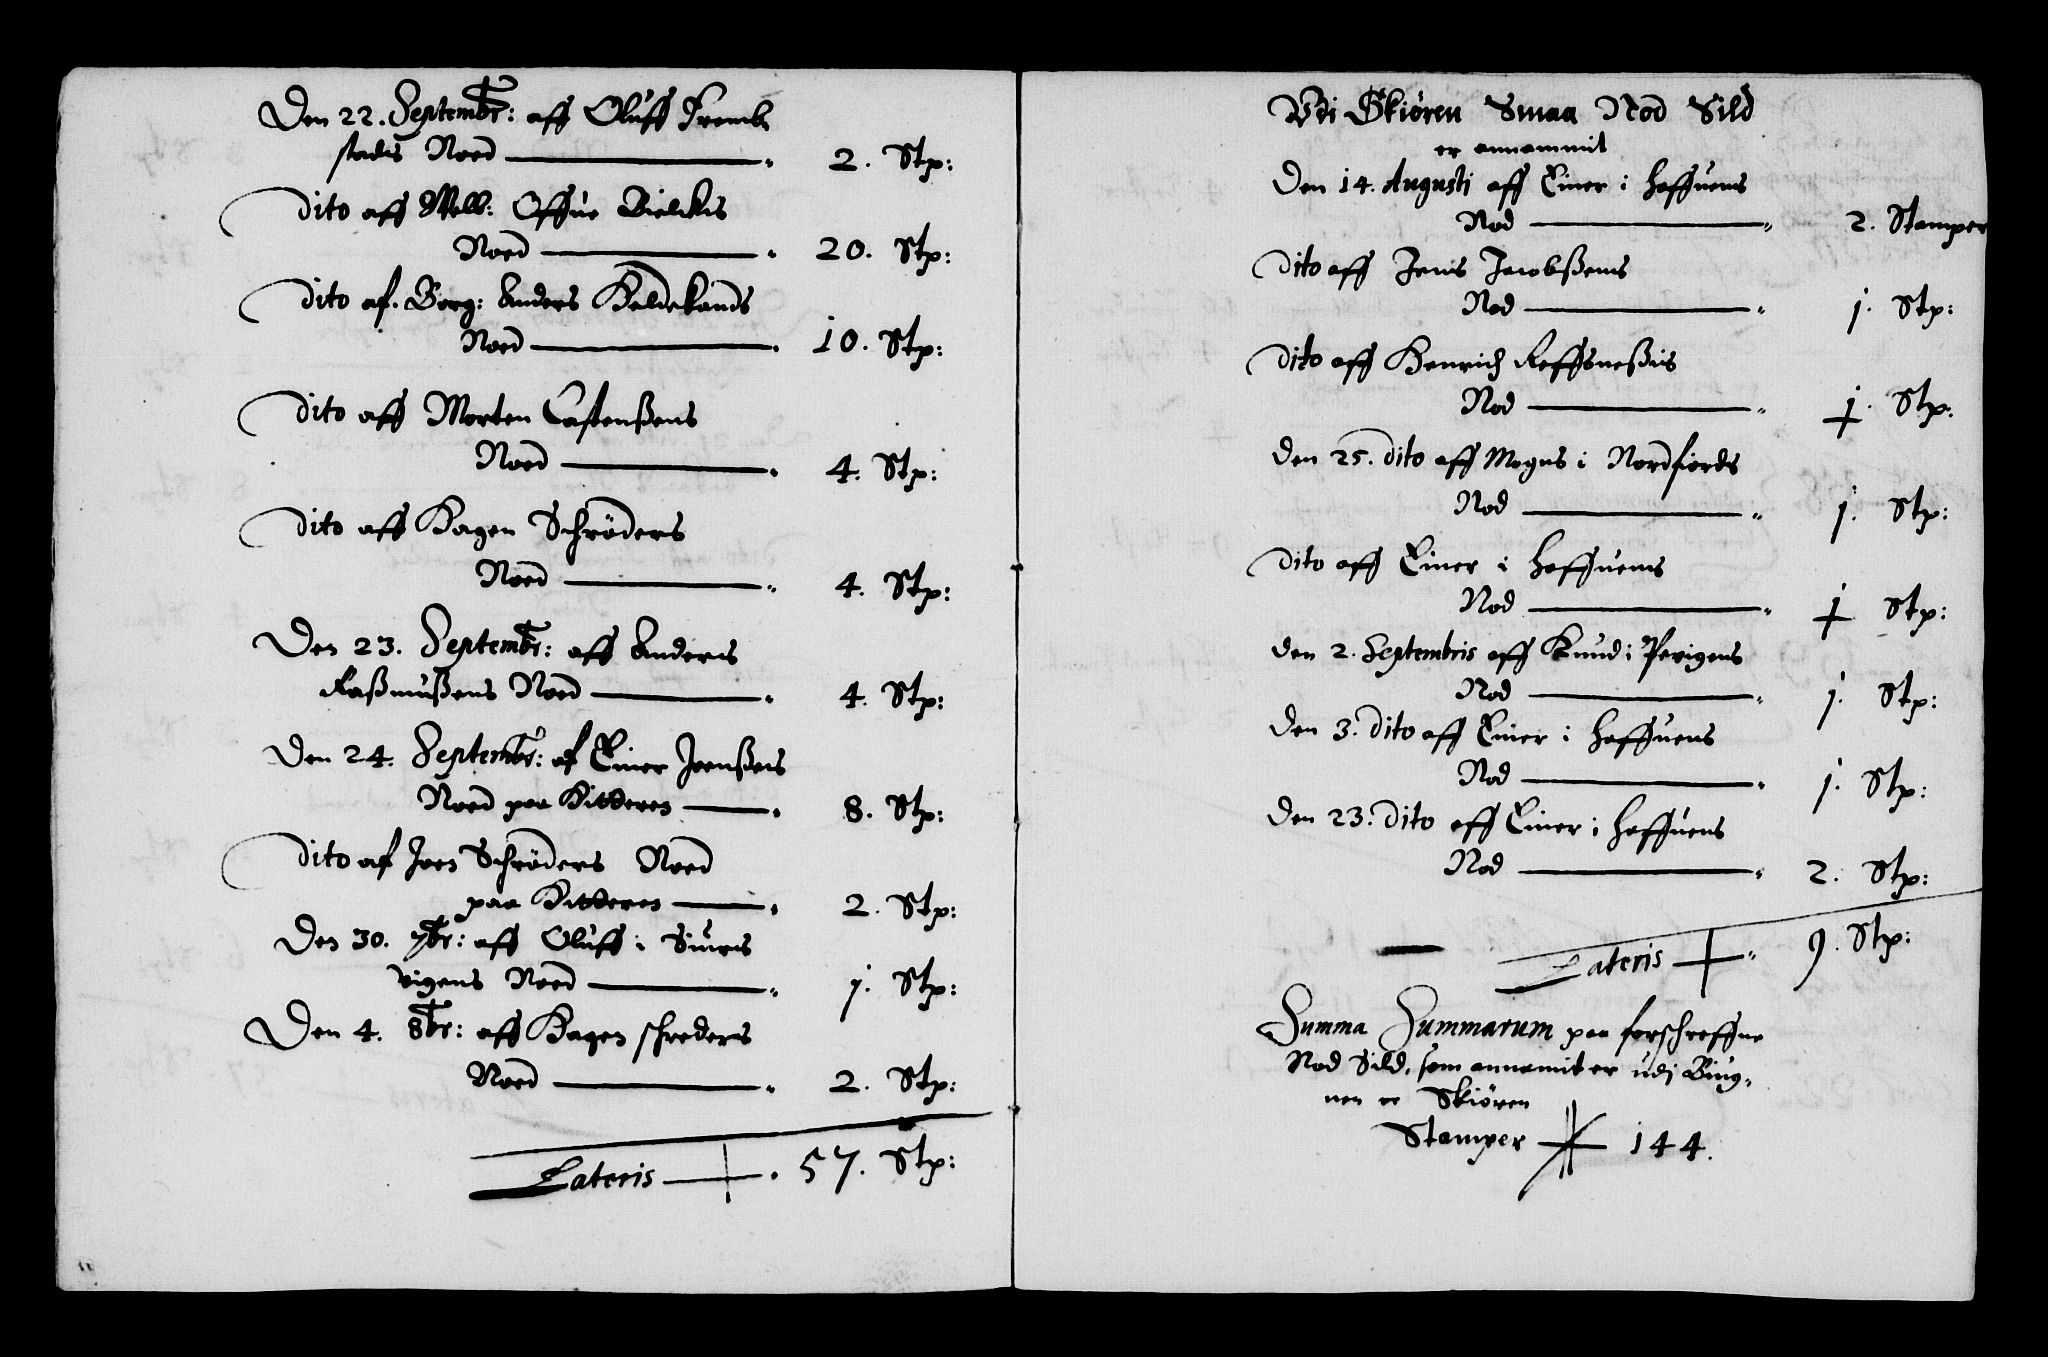 Den 22. Septembr: aff Oluff Fremb
stadis Noed 2. Stp:
Dito aff Welb: Offue Bielckis
Noed 20. Stp:
Dito af. Borg: Anders Heldekands
Noed 10. Stp:
Dito aff Morten Castenßens
Noed 4. Stp:
Dito aff Hagen Schröders
Noed 4. Stp:
Den 23. Septembr: aff Anders
Raßmußens Noed 4. Stp:
Den 24. Septembr: af Einer Joenßens
Noed paa Kitteren 8. Stp:
Dito af Joen Schröders Noed
paa Kitteren 2. Stp:
Den 30. 7br: aff Oluff i Siuris
vigens Noed j. Stp:
Den 4. 8br: aff Hagen schreders
Noed 2. Stp:
Lateris 57. Stp:
Vdi Skiören Smaa Nod Sild
er annammit
Den 14. Augusti aff Einer i Haffuens
Nod 2. Stamper
Dito aff Jens Jacobßens
Nod j. Stp:
Dito aff Henrich Reffsneßis
Nod j. Stp:
Den 25. dito aff Mogns i Nordfiords
Nod j. Stp:
Dito aff Einer i Haffuens
Nod j Stp:
Den 2. Septembris aff Knud i Pevigens
Nod j. Stp:
Den 3. dito aff Einer i Haffuens
Nod j. Stp:
Den 23. dito aff Einer i Haffuens
Nod 2. Stp:
Lateris 9. Stp:
Summa Summarum paa forschreffne
Nod Sild, som annamit er udj Biug-
nen oc Skiören
Stamper 144.